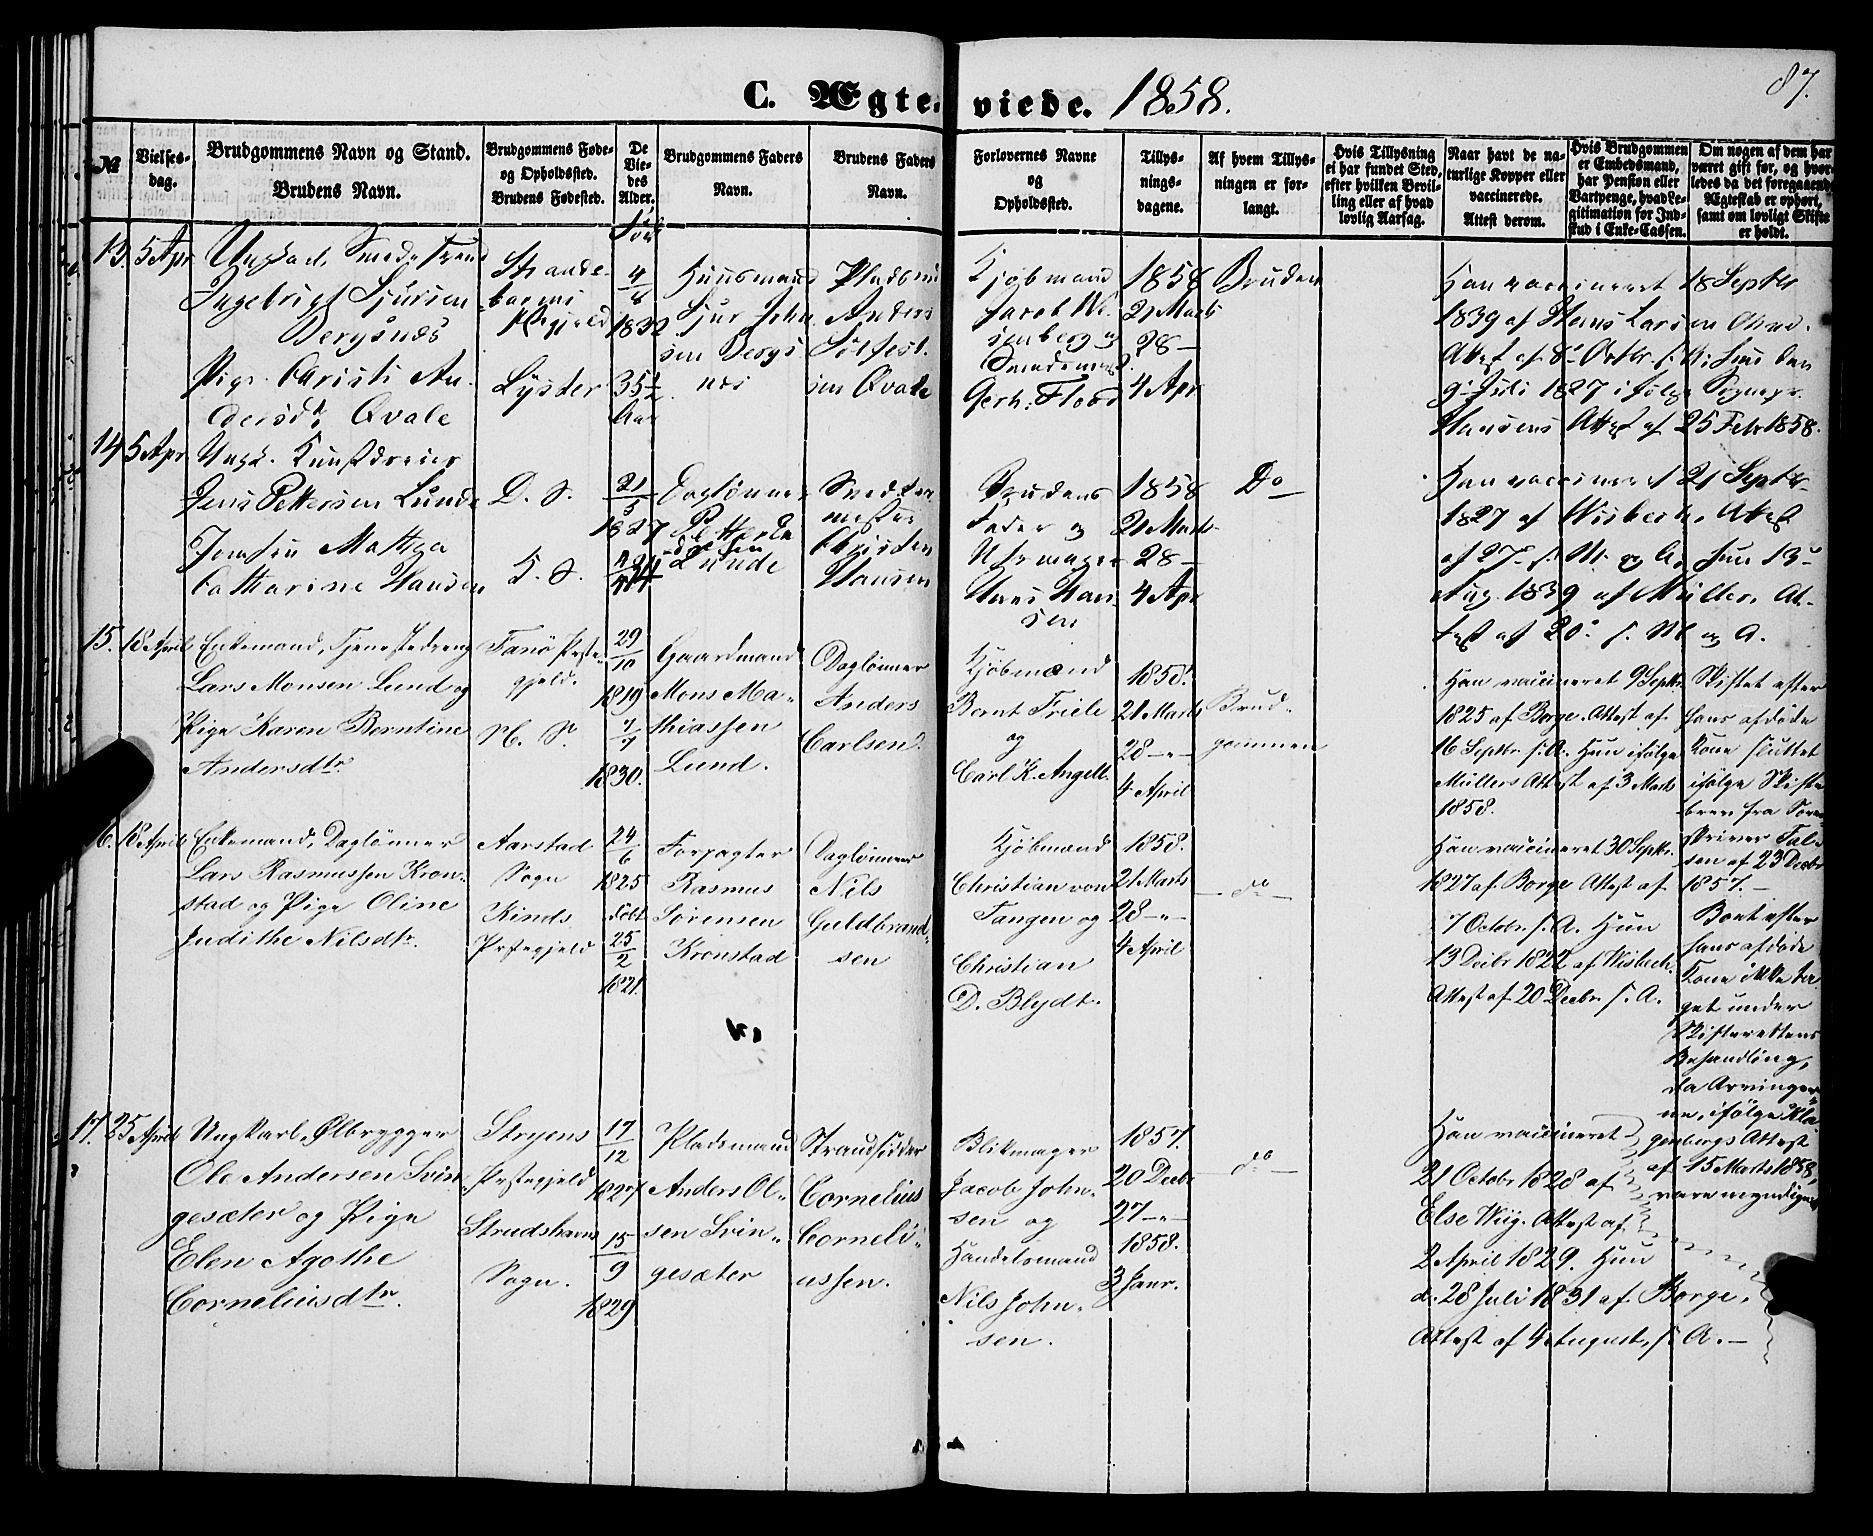 C. Ægteviede. 1858.
87.
№
Vielses-
dag.
Brudgommens Navn og Stand.
Brudens Navn.
Brudgommens Føde-
og Opholdssted.
Brudens Fødested.
De
Vie-
des
Alder.
Brudgommens Faders
Navn.
Brudens Faders
Navn.
Forlovernes Navne
og
Opholdssted.
Tillys-
nings-
dagene.
Af hvem Tillys-
ningen er for-
langt.
Hvis Tillysning
ei har fundet Sted,
efter hvilken Bevil-
ling eller af hvad
lovlig Aarsag.
Naar havt de na-
turlige Kopper eller
vaccinerede.
Attest derom.
Hvis Brudgommen
er Embedsmand,
har Pension eller
Vartpenge, hvad Le-
gitimation for Ind-
skud i Enke-Cassen.
Om nogen af dem har
været gift før, og hvor-
ledes da det foregaaende
Ægteskab er ophørt,
samt om lovligt Skifte
er holdt.
13. 5 Apr
Ingebrigt Sjursen
Bergsnæs
Pige Christi An-
dersd. Qvale
Strande-
barms
Pgjeld
Lyster
4/8
1832
35½
Aar
Huusmand
Sjur John
sen Bergs
næs
Pladsm
Anders
Solfest
sen Qvale
Kjøbmand
Jacob We-
senberg og
Smedem
Gerh: Floor
1858
21 Marts
28 -
4 Apr
Bruden
Han vaccineret 18 Septbr
1839 af Hans Larsen
Attest af 8' Octbr s. A. Hun den
9' Juli 1827 ifølge Sognepr
Hansens Attest af 25 Febr 1858.
14 5 Apr
Ungk. Kunstdreier
Jens Pettersen Lunde
Jomfru Mathea
Catharine Hansen
D. S.
K. S.
21/5
1827
Daglønner
Petter
Lunde
Smedde-
mester
Christen
Hansen
Brudens
Fader og
Uhrmager
Hans Han
sen
1858
21 Marts
28 -
4 Apr
Do
Han vaccineret 21 Septbr
1827 af Wisbech, Attest
af 27 s. M. og A. Hun 13
Aug. 1839 af Müller. At-
test af 20' s. M og A.
15. 18 April
Enkemand, Tjenestedreng
Lars Monsen Lund og
Pige Karen Berntine
Andersdtr
Fanø Præste-
gjeld.
N. S.
29/10
1819
7/7
1830.
Gaardmand
Mons Ma-
thiassen
Lund.
Daglønner
Anders
Carlsen.
Kjøbmænd
Bernt Friele
og
Carl K. Angell.
1858.
21 Marts
28 -"-
4 April
Brud-
gommen
Han vaccineret 9 Septbr.
1825 af Borge. Attest af
16 Septbr. s. A. Hun ifølge
Müllers Attest af 3 Marts
1858.
Skiftet efter
hans afdøde
Kone sluttet
ifølge Skifte
brev fra Soren
skriver Fal-
sen af 23 Decbr
1857. -
16. 18 April
Enkemand, Daglønner
Lars Rasmussen Kron-
stad og Pige Oline
Judithe Nilsdtr.
Aarstad
Sogn
Kinds
Præstegjeld
24/6
1825
døbt
25/2
1821.
Forpagter
Rasmus
Sørensen
Kronstad
Daglønner
Nils
Guldbrand-
sen
Kjøbmand
Christian von
Tangen og
Christian
D. Blydt.
1858.
21 Marts
28 -"-
4 April
- do -
Han vaccineret 30 Septbr.
1827 af Borge Attest af
7 Octobr. s. A. Hun
13 Decbr 1822 af Wisbech.
Attest af 20 Decbr s. A.
Boet efter
hans afdøde
Kone ikke ta
get under
Skifterettens
Behandling,
da Arvinger-
ne, ifølge Kla
genbergs Attest
af 15 Marts 1858,
vare myndige
17. 25 April
Ungkarl, Ølbrygger
Ole Andersen Svin-
gesæter og Pige
Elen Agothe
Corneliusdtr.
Stryens
Præstegjeld
Strudshavns
Sogn.
17/12
1827
15/9
1829
Pladsmand
Anders Ol-
sen Svin-
gesæter
Strandsidder
Cornelius
Corneli-
ussen.
Blikmager
Jacob John-
sen og
Handelsmand
Nils John-
sen.
1857.
20 Decbr
27 -"-
1858.
3 Janr.
- do -
Han vaccineret
21 Octobr 1828 af
Else Wiig. Attest af
2 April 1829. Hun
d. 28 Juli 1831 af Borge.
Attest af 4 August, s. A. -